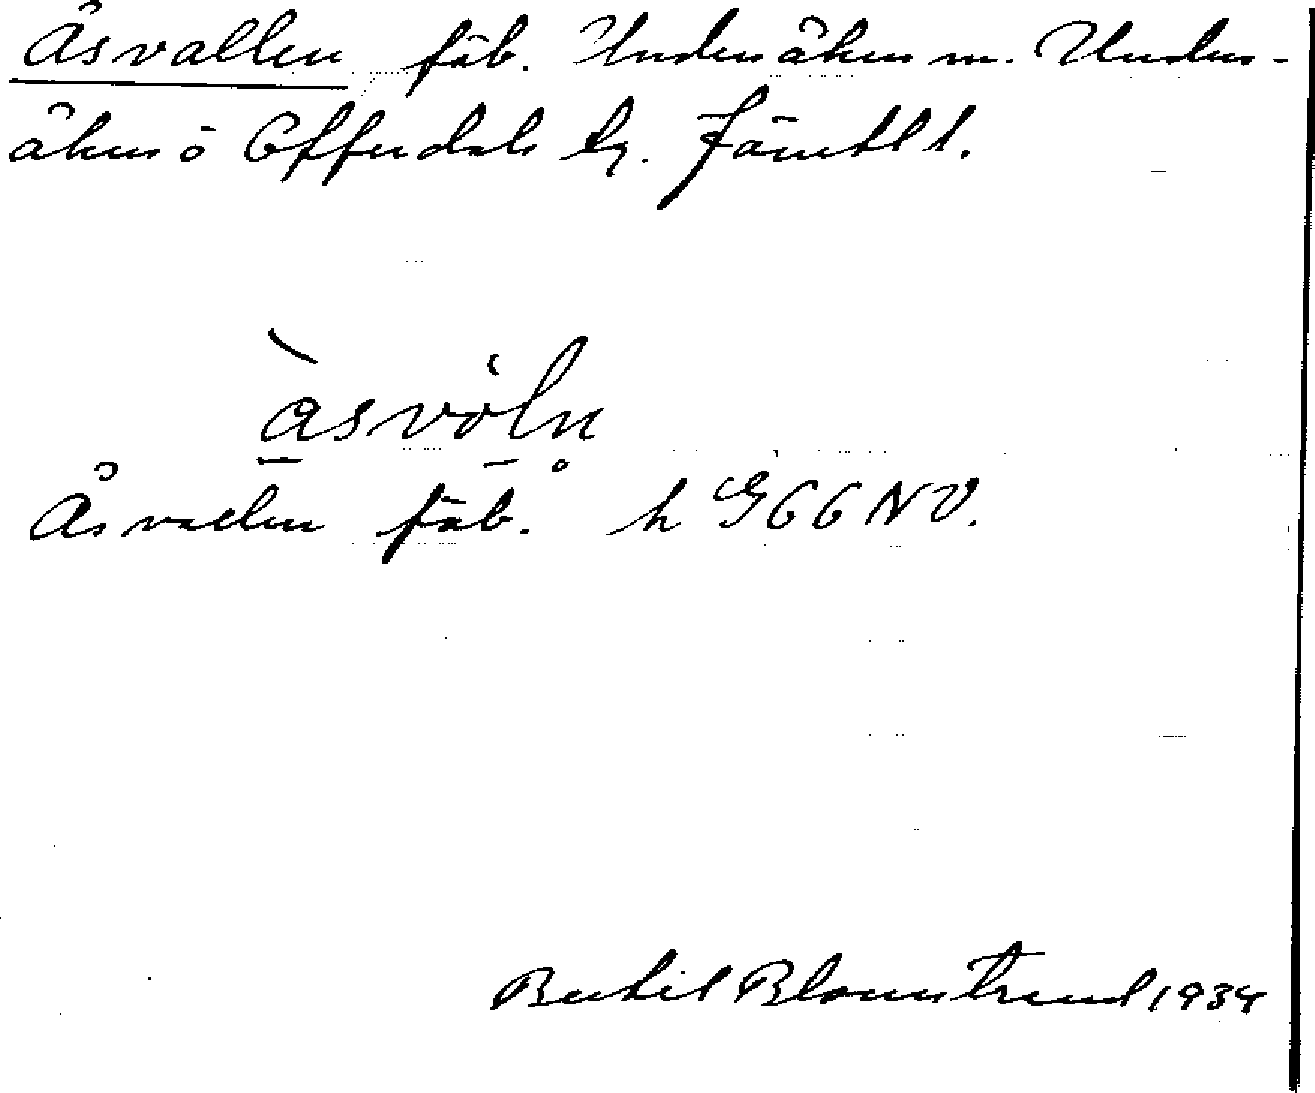 Åsvallen fäb. Undersåkers m. Unders-
åkers o Offerdals tg. Jämtl l.
àsvòln
Åsvallen fäb. h G66NV.
Bertil Blomstrand 1934